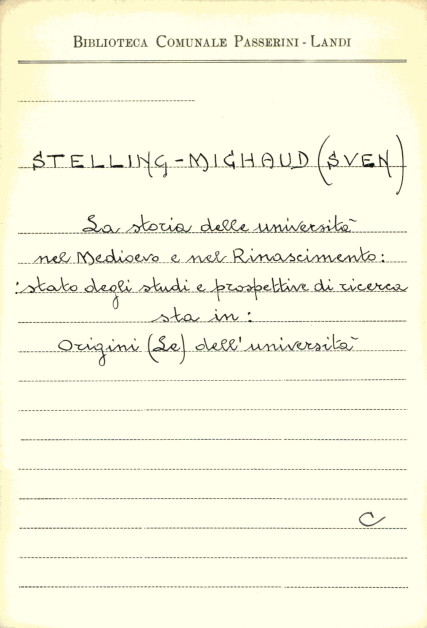 BIBLIOTECA COMUNALE PASSERINI - LANDI
STELLING-MICHAUD (SVEN)
La storia delle università
nel Medioevo e nel Rinascimento:
: stato degli studi e prospettive di ricerca
sta in:
Origini (Le) dell'università
C